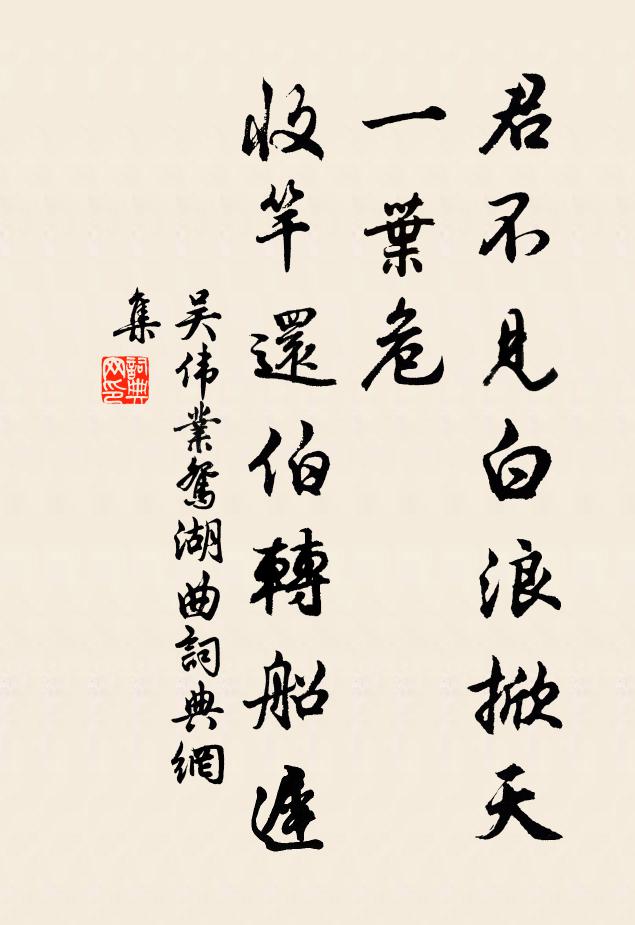 君不見白浪掀天
一葉危
收竿還伯轉船遲
吳伟業鴛湖曲詞典網
集
詞典
网印